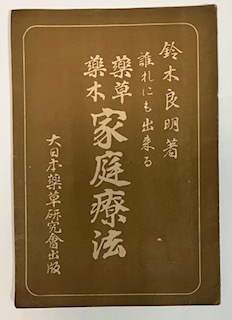 鈴木良明著
誰れにも出来る
薬草
薬木
家庭療法
大日本薬草研究會出版